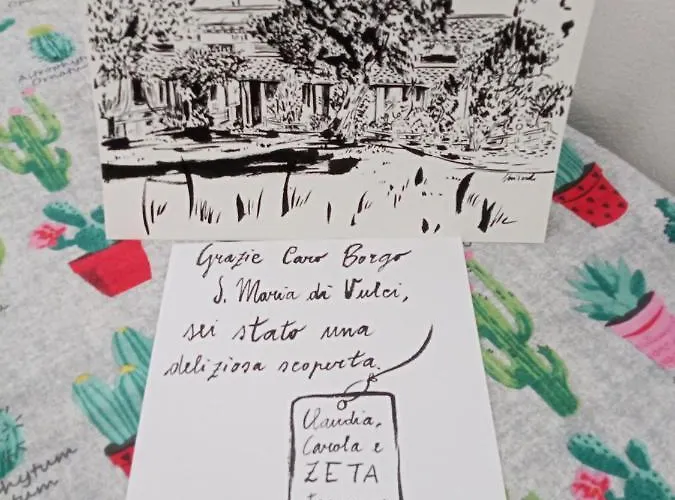 Grazie Caro Borgo
S. Maria di Vulci,
sei stato una
deliziosa scoperta.
Claudia,
Carola e
ZETA